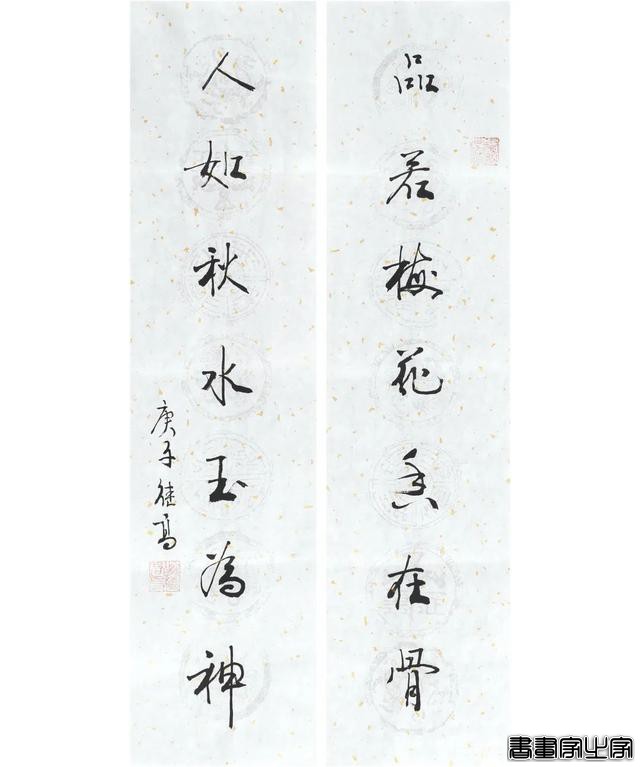 品若梅花香在骨
人如秋水玉为神
庚子
書畫家之家